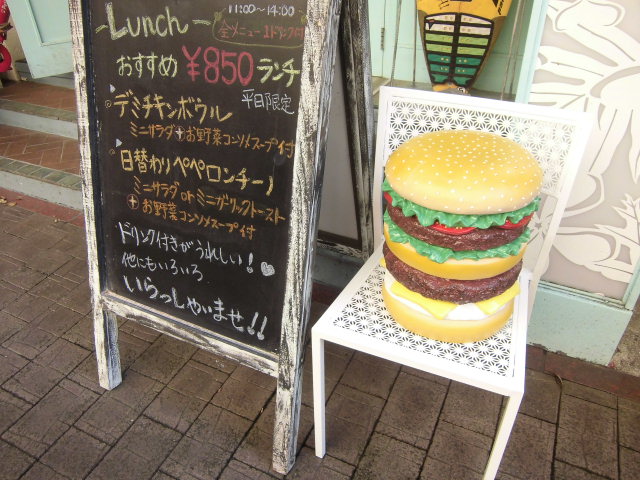 -Lunch-
11:00～14:00
全メニュー 1ドリンク付
おすすめ ¥850 ランチ
平日限定
・デミチキンボウル
ミニサラダ+お野菜コンソメスープ付
・日替わりペペロンチーノ
ミニサラダ or ミニガーリックトースト
+お野菜コンソメスープ付
ドリンク付きがうれしい!
他にもいろいろ
いらっしゃいませ!!